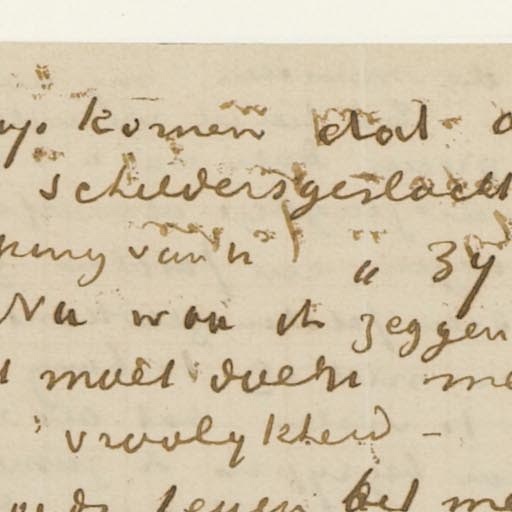 komen dat
schildersgeslacht
van 'n " zy
Nu wou ik zeggen
moet doen me
vroolykheid –
leven het me